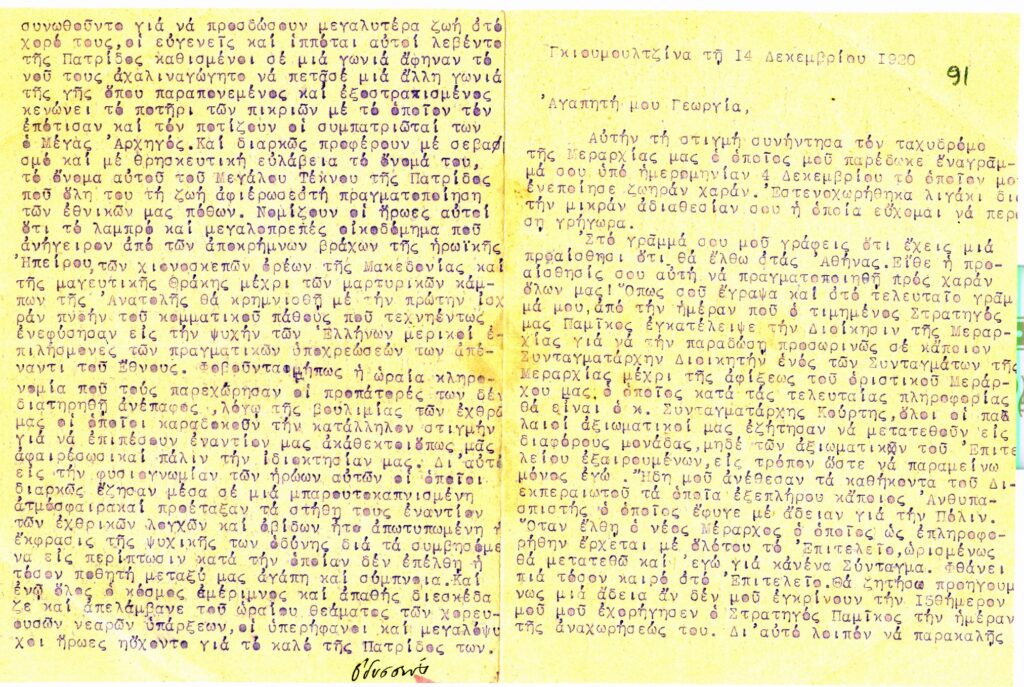 συνωθοῦντο γιά νά προσδώσουν μεγαλυτέρα ζωή στό
χορό τους,οἱ εὐγενεῖς καί ἱππόται αὐτοί λεβέντο
τῆς Πατρίδος καθισμένοι σέ μιά γωνιά ἄφηναν τό
νοῦ τους ἀχαλιναγώγητο νά πετᾷσε μιά ἄλλη γωνιά
τῆς γῆς ὅπου παραπονεμένος καί ἐξοστρακισμένος
κενώνει τό ποτῆρι τῶν πικριῶν μέ τό ὁποῖον τόν
ἐπότισαν καί τόν ποτίζουν οἱ συμπατριῶται των
ὁ Μέγας Ἀρχηγός.Καί διαρκῶς προφέρουν μέ σεβα
σμό καί μέ θρησκευτική εὐλάβεια τό ὄνομά του,
τό ὄνομα αὐτοῦ τοῦ Μεγάλου Τέκνου τῆς Πατρίδος
ποῦ ὅλη του τή ζωή ἀφιέρωσεστή πραγματοποίηση
τῶν ἐθνικῶν μας πόθων. Νομίζουν οἱ ἥρωες αὐτοί
ὅτι τό λαμπρό καί μεγαλοπρεπές οἰκοδόμημα ποῦ
ἀνήγειρον ἀπό τῶν ἀποκρήμνων βράχων τῆς ἡρωϊκῆς
Ἠπείρου,τῶν χιονοσκεπῶν ὀρέων τῆς Μακεδονίας καί
τῆς μαγευτικῆς Θράκης μέχρι τῶν μαρτυρικῶν κάμ-
πων τῆς Ἀνατολῆς θά κρημνισθῇ μέ τήν πρώτην ἰσχ
ράν πνοήν τοῦ κομματικοῦ πάθους ποῦ τεχνηέντως
ἐνεφύσησαν εἰς τήν ψυχήν τῶν Ἑλλήνων μερικοί ἐ-
πιλήσμονες τῶν πραγματικῶν ὑποχρεώσεών των ἀπέ-
ναντι τοῦ Ἔθνους. Φοβοῦνταιμήπως ἡ ὡραία κληρο-
νομία ποῦ τούς παρεχώρησαν οἱ προπάτορές των δέν
διατηρηθῇ ἀνέπαφος ,λόγω τῆς βουλιμίας τῶν ἐχθρῶ
μας οἱ ὁποῖοι καραδοκοῦν τήν κατάλληλον στιγμήν
γιά νά ἐπιπέσουν ἐναντίον μας ἀκάθεκτοιὅπως μᾶς
ἀφαιρέσωσικαί πάλιν τήν ἰδιοκτησίαν μας. Δι'αὐτό
εἰς τήν φυσιογνωμίαν τῶν ἡρώων αὐτῶν οἱ ὁποῖοι
διαρκῶς ἔζησαν μέσα σέ μιά μπαρουτοκαπνισμένη
ἀτμόσφαιρακαί προέταξαν τά στήθη τους ἐναντίον
τῶν ἐχθρικῶν λογχῶν καί ὀβίδων ἦτο ἀπωτυπωμένη ἡ
ἔκφρασις τῆς ψυχικῆς των ὀδύνης διά τά συμβησόμε
να εἰς περίπτωσιν κατά τήν ὁποίαν δέν ἐπέλθῃ ἡ
τόσον ποθητή μεταξύ μας ἀγάπη καί σύμπνοια.Καί
ἐνῷ ὅλος ὁ κόσμος ἀμέριμνος καί ἀπαθής διεσκέδα
ζε καί ἀπελάμβανε τοῦ ὡραίου θεάματος τῶν χορευ-
ουσῶν νεαρῶν ὑπάρξεων,οἱ ὑπερήφανοι καί μεγαλόψυ
χοι ἥρωες ηὔχοντο γιά τό καλό τῆς Πατρίδος των.
Γκιουμουλτζίνα τῇ 14 Δεκεμβρίου 1920
91
Ἀγαπητή μου Γεωργία,
Αὐτήν τή στιγμή συνήντησα τόν ταχυδρόμο
τῆς Μεραρχίας μας ὁ ὁποῖος μοῦ παρέδωκε ἕναγρᾶμ-
μά σου ὑπό ἡμερομηνίαν 4 Δεκεμβρίου τό ὁποῖον μο
ἐνεποίησε ζωηράν χαράν.Ἐστενοχωρήθηκα λιγάκι διά
τήν μικράν ἀδιαθεσίαν σου ἡ ὁποία εὔχομαι νά περα
ση γρήγωρα.
Στό γρᾶμμά σου μοῦ γράφεις ὅτι ἔχεις μιά
προαίσθησι ὅτι θά ἔλθω στάς Ἀθήνας.Εἴθε ἡ προ-
αίσθησίς σου αὐτή νά πραγματοποιηθῇ πρός χαράν
ὅλων μας!Ὅπως σοῦ ἔγραψα καί στό τελευταῖο γρᾶμ
μά μου,ἀπό τήν ἡμέραν ποῦ ὁ τιμημένος Στρατηγός
μας Παμῖκος ἐγκατέλειψε τήν Διοίκησιν τῆς Μεραρ-
χίας γιά νά τήν παραδώσῃ προσωρινῶς σέ κάποιον
Συνταγματάρχην Διοικητήν ἑνός τῶν Συνταγμάτων τῆς
Μεραρχίας μέχρι τῆς ἀφίξεως τοῦ ὁριστικοῦ Μεράρ-
χου μας,ὁ ὁποῖος κατά τάς τελευταίας πληροφορίας
θά εἶναι ὁ κ. Συνταγματάρχης Κούρτης,ὅλοι οἱ πα
λαιοί ἀξιωματικοί μας ἐζήτησαν νά μετατεθοῦν εἰς
διαφόρους μονάδας,μηδέ τῶν ἀξιωματικῶν τοῦ Ἐπιτε
λείου ἐξαιρουμένων,εἰς τρόπον ὥστε νά παραμείνω
μόνος ἐγώ .Ἤδη μοῦ ἀνέθεσαν τά καθήκοντα τοῦ Δι-
εκπεραιωτοῦ τά ὁποῖα ἐξεπλήρου κάποιος Ἀνθυπα-
σπιστής ὁ ὁποῖος ἔφυγε μέ ἄδειαν γιά τήν Πόλιν.
Ὅταν ἔλθῃ ὁ νέος Μέραρχος ὁ ὁποῖος ὡς ἐπληροφο-
ρήθην ἔρχεται μέ ὁλότου τό Ἐπιτελεῖο,ὡρισμένως
θά μετατεθῶ καί ἐγώ γιά κανένα Σύνταγμα. Φθάνει
πιά τόσον καιρό στό Ἐπιτελεῖο.Θά ζητήσω προηγουμ
νως μιά ἄδεια ἄν δέν μοῦ ἐγκρίνουν τήν 15θήμερον
μοῦ μοῦ ἐχορήγησεν ὁ Στρατηγός Παμῖκος τήν ἡμέραν
τῆς ἀναχωρήσεώς του. Δι'αὐτό λοιπόν νά παρακαλῇς